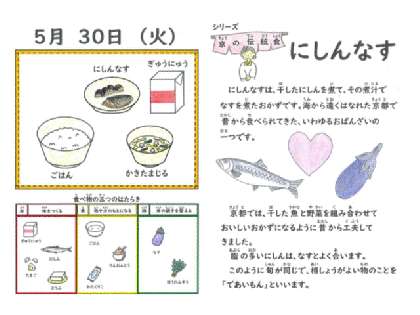 5月 30日 (火)
にしんなす
ぎゅうにゅう
ごはん
かきたまじる
食べ物の三つのはたらき
ぎゅうにゅう
にしん
たまご
ごはん
なす
シリーズ
京の伝統食
にしんなす
にしんなすは、干したにしんを煮て、その煮汁で
なすを煮たおかずです。海から遠くはなれた京都で
昔から食べられてきた、いわゆるおばんざいの
一つです。
京都では、干した魚と野菜を組み合わせて
おいしいおかずになるように昔から工夫して
きました。
脂の多いにしんは、なすとよく合います。
このように旬が同じで、相しょうがよい物のことを
「であいもん」といいます。